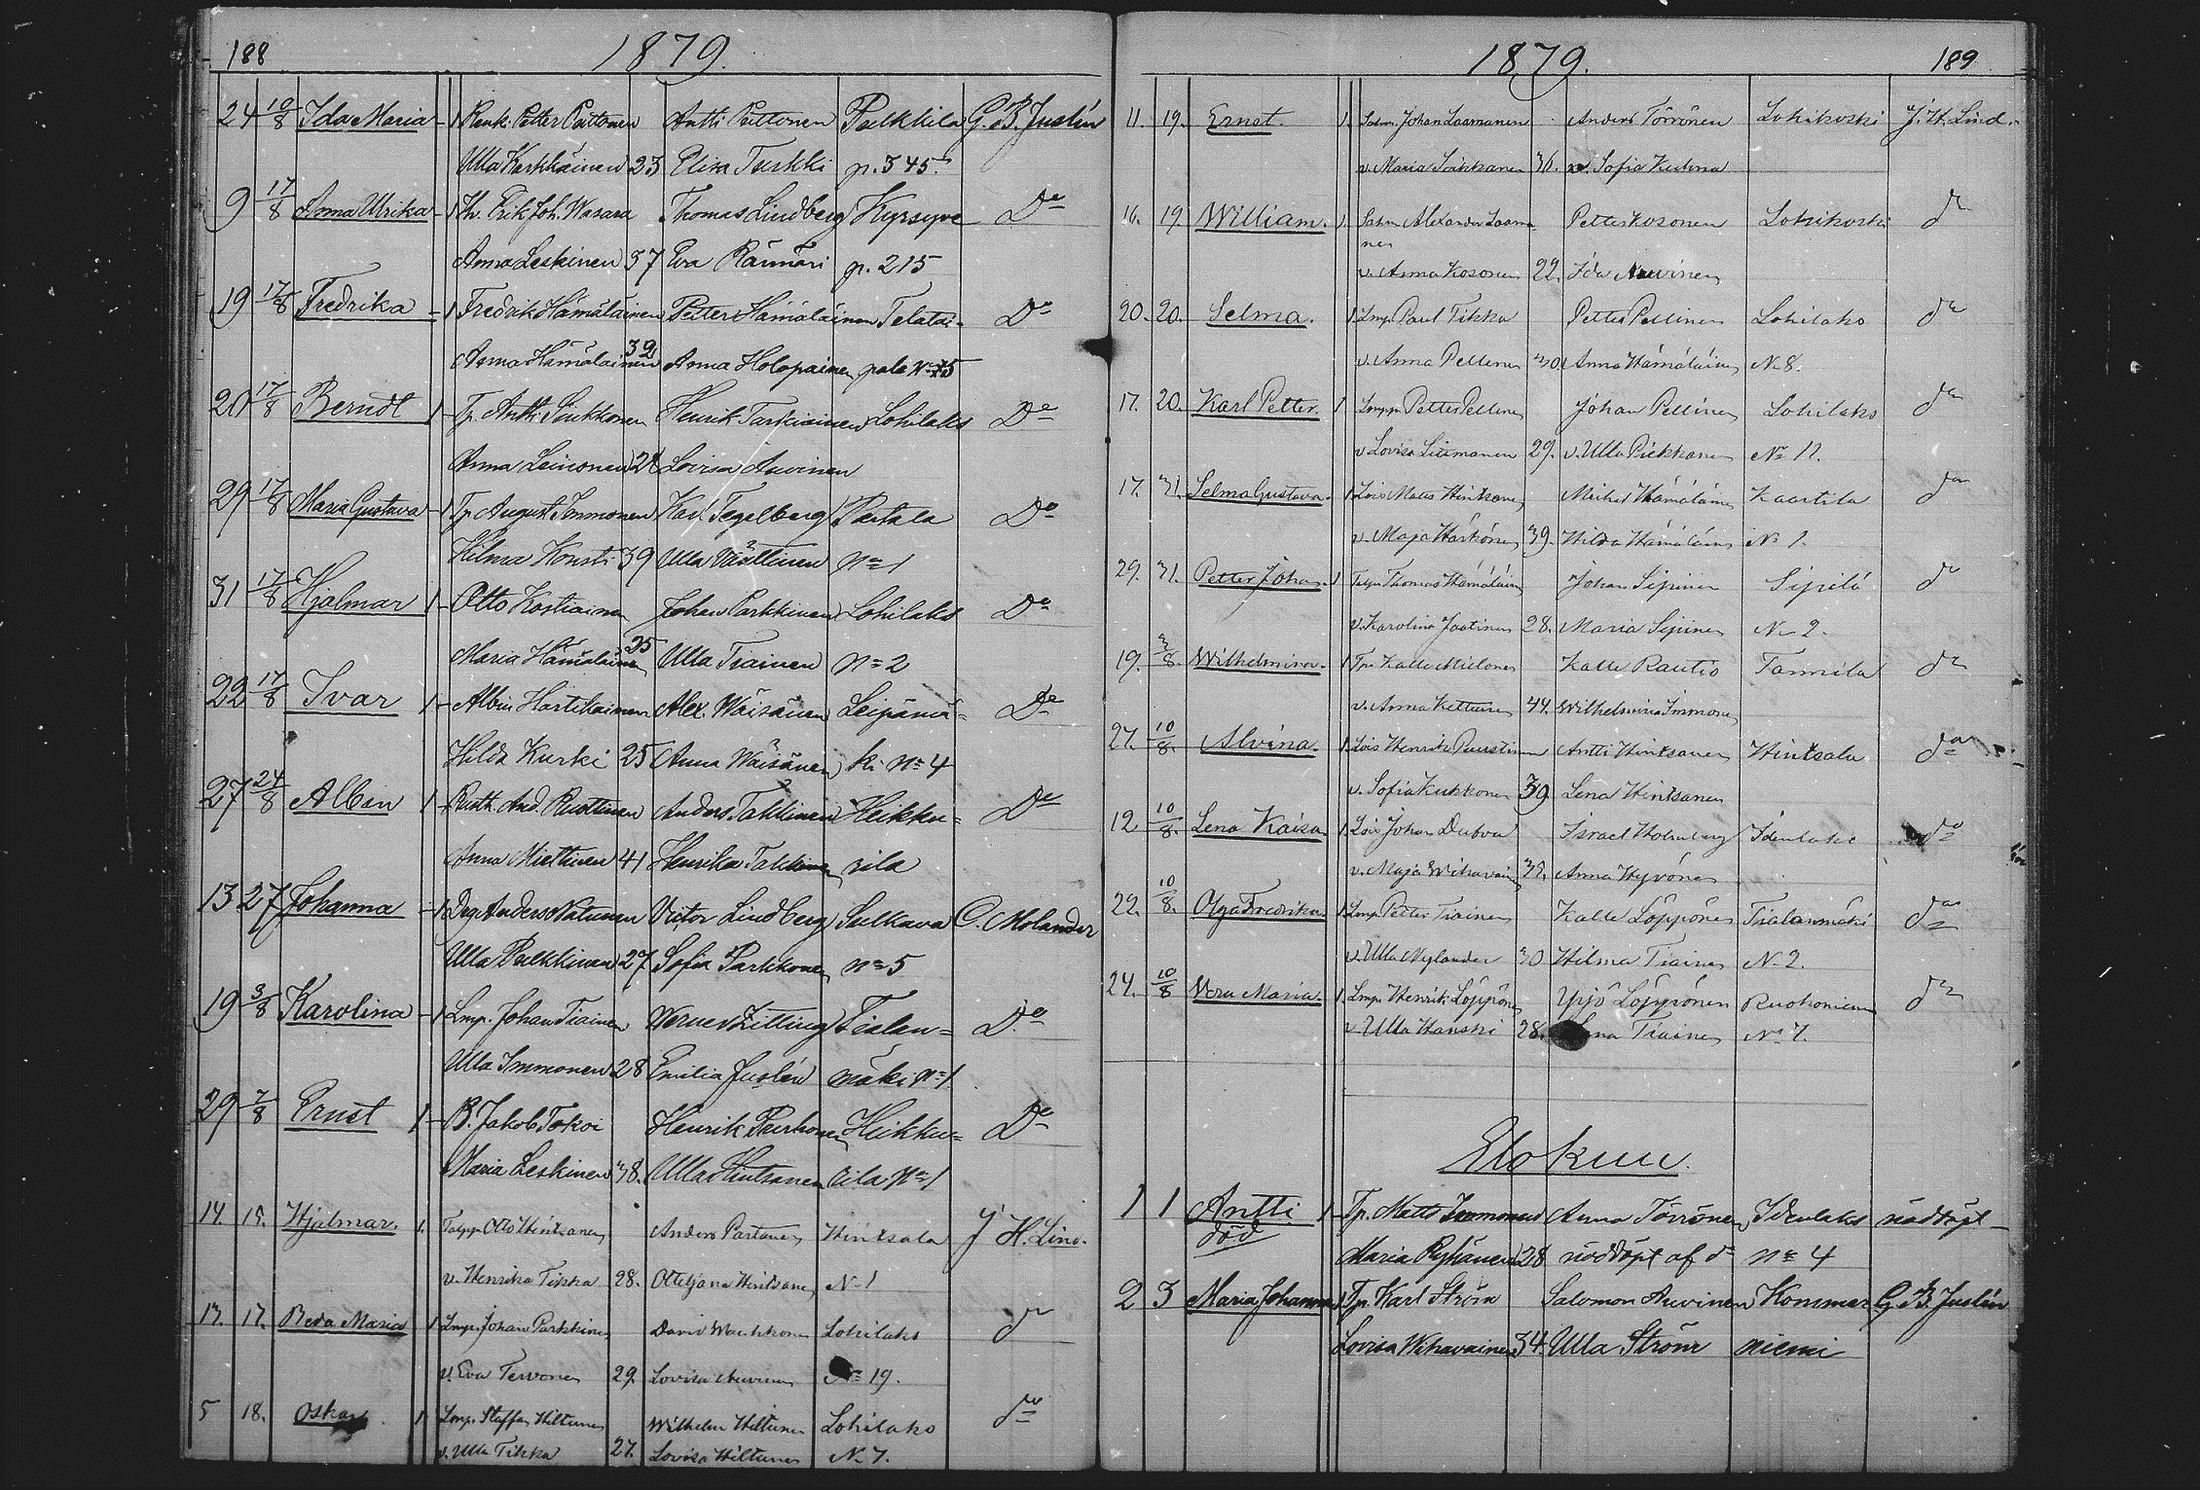 188 1879.
24 10/8 Ida Maria 1 Renk. Petter Puttonen Antti Puttonen Pulkkila G. B. Juslén
Ulla Karhhäinen 23 Elisa Turkki p. 345.
9 17/8 Anna Ulrika 1 Th. Erik Joh. Wasara Thomas Lindberg Kyrsyve Do
Anna Leskinen 37 Eva Rännäri p. 215
19 17/8 Fredrika 1 Fredrik Hämäläinen Petter Hämäläinen Telatai- Do
Anna Hämäläinen 32 Anna Holopainen pale No 75
20 17/8 Berndt 1 Tp. Antti Sinkkonen Henrik Tarkiainen Lohilaks Do
Anna Leinonen 24 Lovisa Auvinen
29 17/8 Maria Gustava 1 Tp. August Immonen Karl Tegelberg Partala Do
Hilma Konsti 39 Ulla Väättinen No 1
31 17/8 Hjalmar 1 Otto Kostiainen Johan Parkkinen Lohilaks Do
Maria Hämäläinen 35 Ulla Tiainen No 2
22 17/8 Ivar 1 Albin Hartikainen Alex. Wäisänen Leipämä= Do
Hilda Kurki 25 Anna Wäisänen ki No 4
27 24/8 Albin 1 Rusth. And. Ruottinen Anders Tahkinen Heikku= Do
Anna Miettinen 41 Henrika Tahkinen rila
13 27 Johanna 1 Drg. Anders Natunen Victor Lindberg Sulkava C. Molander
Ulla Pulkkinen 27 Sofia Parkkonen No 5
19 3/8 Karolina 1 Lmp. Johan Tiainen Werner Zitting Tialan= Do
Ulla Immonen 28 Emilia Juslén mäki No 1
29 7/8 Ernst 1 B. Jakob Tokoi Henrik Purhonen Heikku= Do
Maria Leskinen 38. Ulla Hintsanen rila No 1
14. 15. Hjalmar. 1. Talpp. Otto Hintsanen Anders Partanen Hintsala J. H. Lind.
v. Henrika Tikka 28. Otteljana Hintsanen No 1
13. 17. Beda Maria 1 Lmp. Johan Parkkinen David Wauhkonen Lohilaks do
v. Eva Tervonen 29. Lovisa Auvinen No 19.
5 18. Oskar. 1 Lmp. Staffan Hiltunen Wilhelm Hiltunen Lohilaks do
v. Ulla Tikka 27. Lovisa Hiltunen No 7.
1879. 189
11. 19. Ernst. 1. Sadm. Johan Laamanen Anders Törrönen Lohikoski J. H. Lind.
v. Maria Soikkanen 36. v. Sofia Kuhma
16. 19. William. 1. Sadm. Alexander Laama Petter Kosonen Lohikoski do
nen
v. Anna Kosonen 22. Ida Auvinen
20. 20. Selma. 1 Lmp. Paul Tikka Petter Pellinen Lohilaks do
v. Anna Pellinen 30. Anna Hämäläinen No 8.
17. 20. Karl Petter. 1 Lmpp. Petter Pellinen Johan Pellinen Lohilaks do
v. Lovisa Liimanen 29. v. Ulla Pickkanen No 11.
17. 31. Selma Gustava. 1 Lois Matts Hintsanen Michel Hämäläinen Kaartila do
v. Maja Härkönen 39. Hilda Hämäläinen No 1.
29. 31. Petter Johan. 1 Talpp. Thomas Hämäläinen Johan Sipinen Sipilä do
v. Karolina Jaatinen 28. Maria Sipinen No 2.
19. 3/8. Wilhelmina. 1 Tpr. Kalle Mielonen Kalle Rautio Tammila do
v. Anna Kettunen 44. Wilhelmina Immonen
27. 10/8. Alvina. 1 Lois Henrik Puustinen Antti Hintsanen Hintsala do
v. Sofia Kukkonen 39. Lena Hintsanen
12. 10/8. Lena Kaisa. 1 Lois Johan Dubva Israel Holmberg Idenlaks do
v. Maja Wihavainen 32. Anna Hyvönen
22. 10/8. Olga Fredrika. 1 Lmp. Petter Tiainen Kalle Löppönen Tialanmäki do
v. Ulla Nylander 30 Hilma Tiainen No 2.
24. 10/8 Vera Maria. 1. Lmp. Henrik Löppönen Yrjö Löppönen Ruokoniemi do
v. Ulla Hanski 28. Tiainen No 7.
Elokuu.
1 1 Antti 1 Tp. Matts Immonen Anna Törrönen Idenlaks nöddöpt
död
Maria Ryhänen 28 nöddöpt af do No 4
2 3 Maria Johanna 1 Tp. Karl Ström Salomon Auvinen Kommer G. B. Juslén
Lovisa Wihavainen 34. Ulla Ström niemi